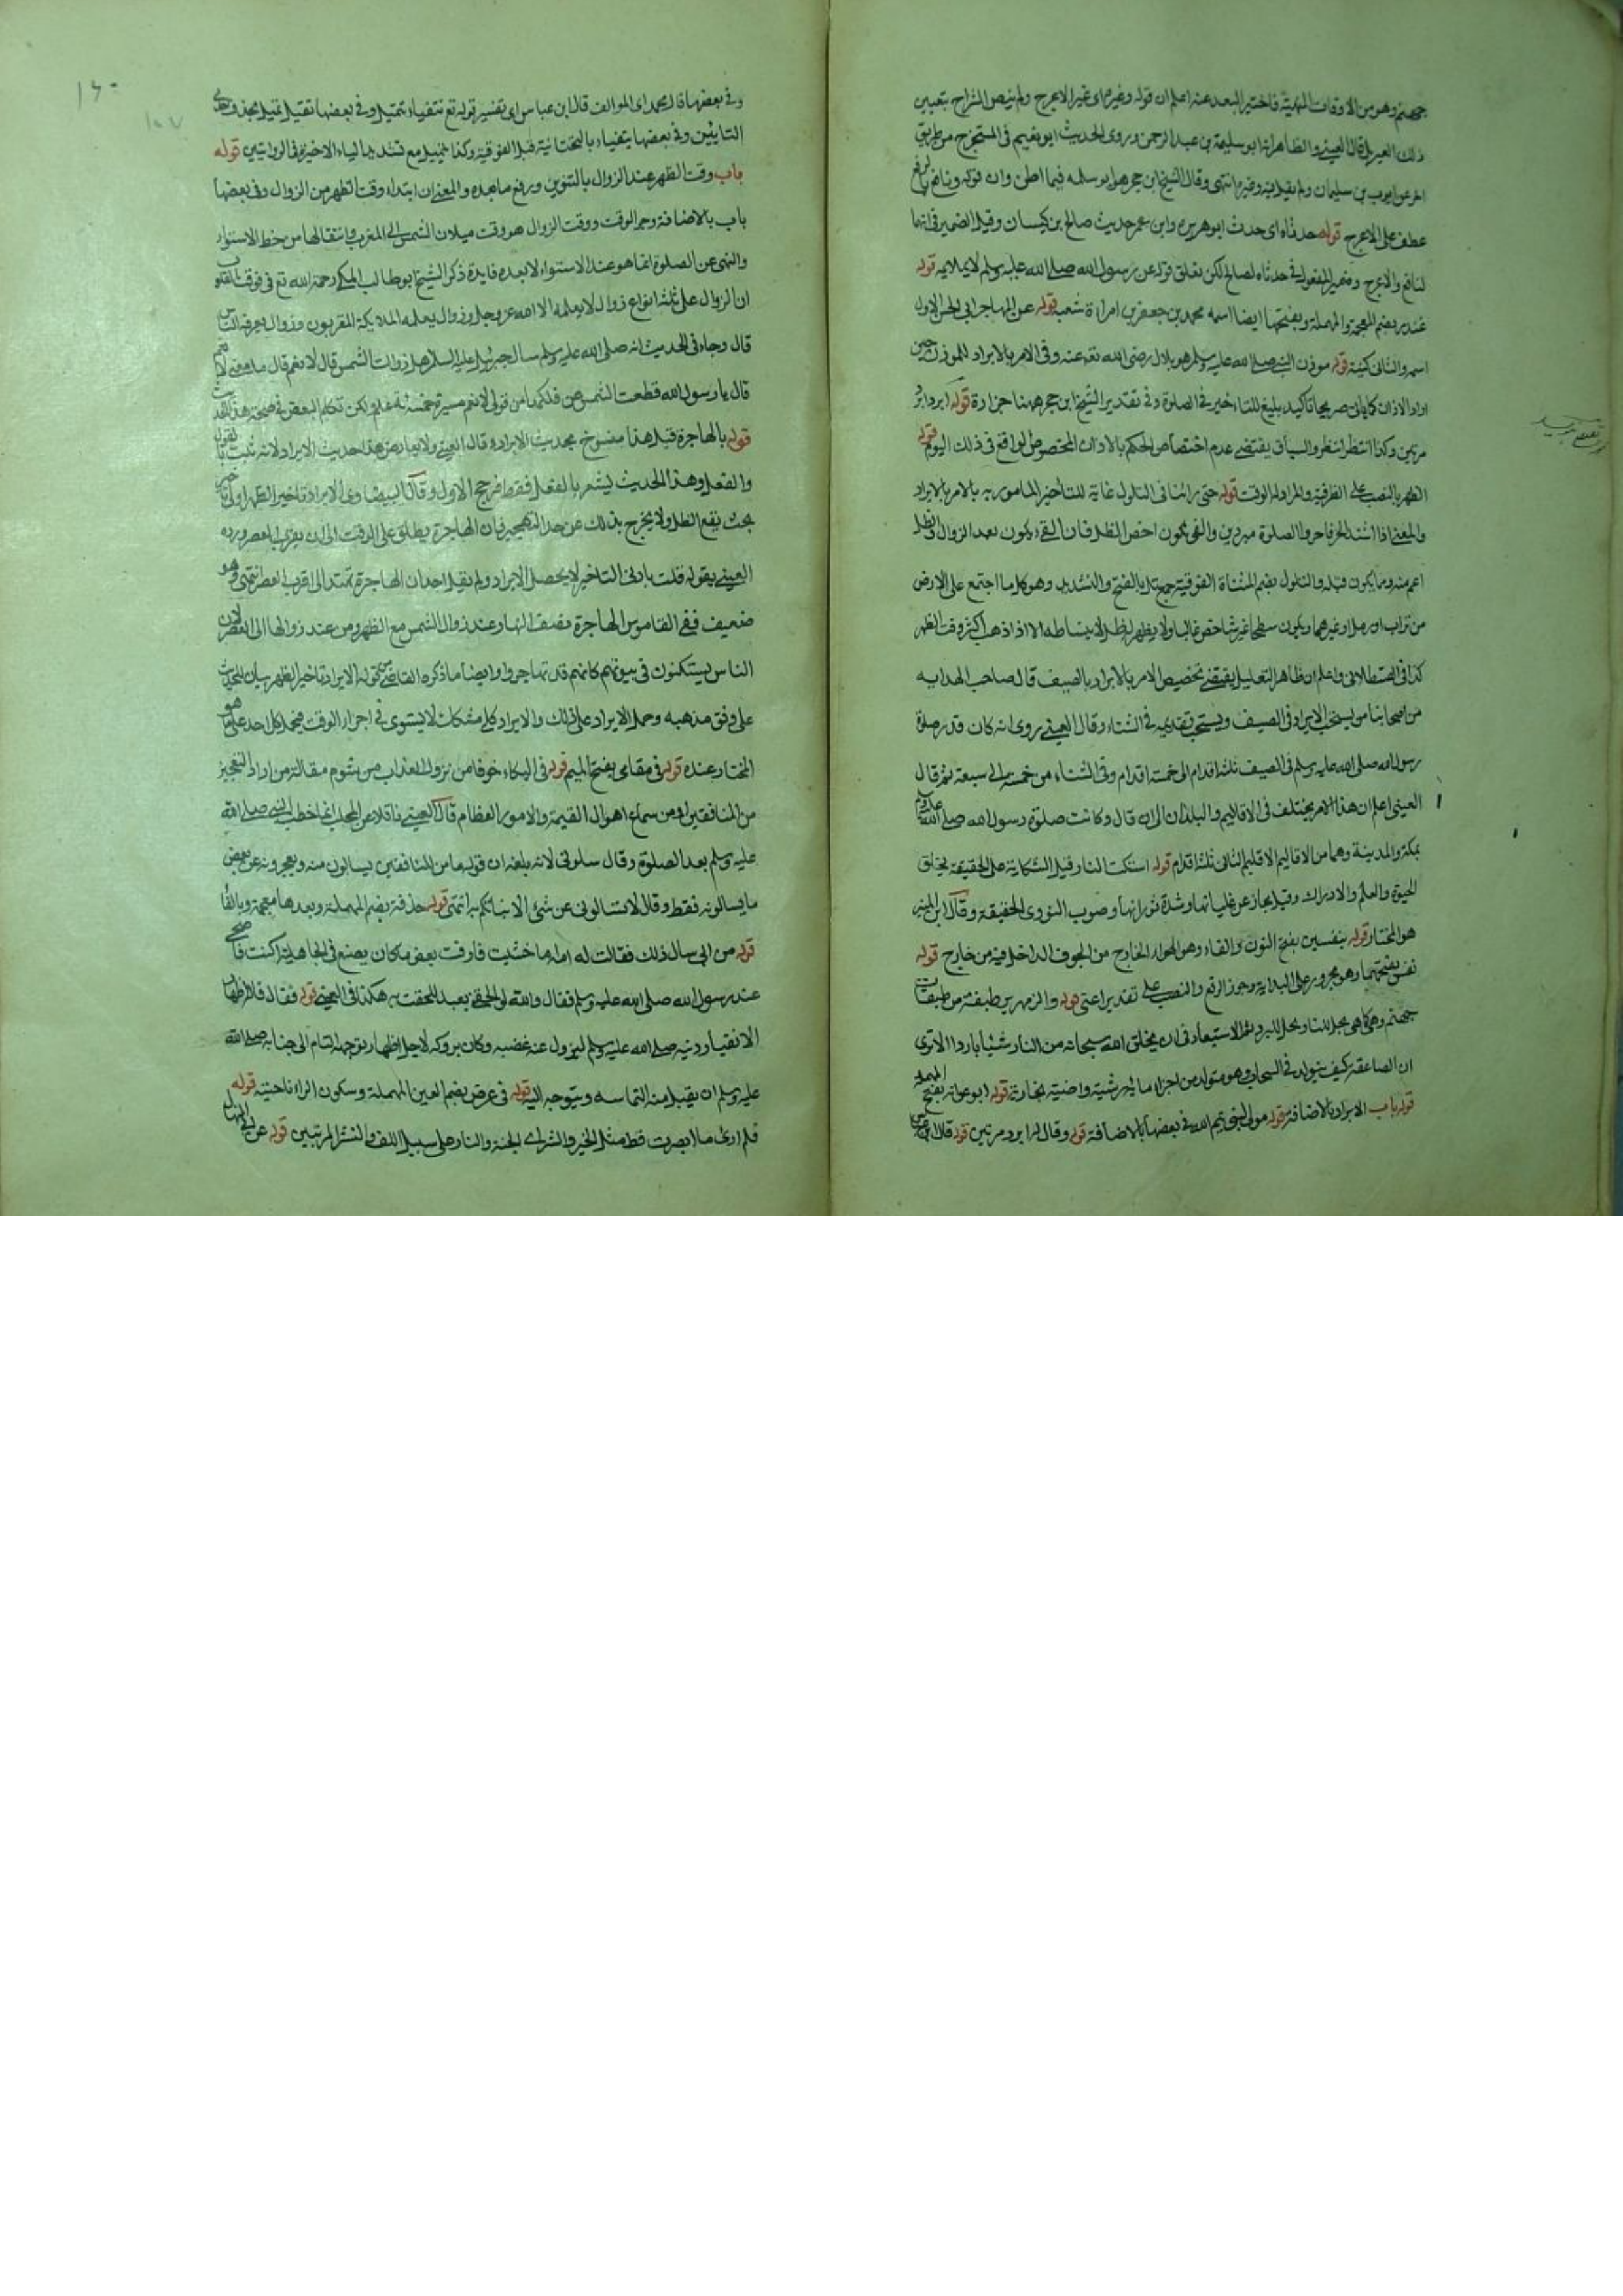 جهنم وهو من الاوقات المنهية فاختير البعد عنه اعلم ان قوله وغيره اى غير الاعرج ولم ينص الشراح بتعيين
ذلك الغير بل قال العينى والظاهر انه ابو سليمة بن عبد الرحمن وروى الحديث ابو نعيم فى المستخرج من طريق
اخر عن ايوب بن سليمان ولم يقل فيه وغيره انتهى وقال الشيخ ابن حجر هو ابو سلمه فيما اظن وان قوله ونافع بالرفع
عطف على الاعرج قوله حدثاه اى حدث ابو هريره وابن عمر حديث صالح بن كيسان وقيل الضمير فى انهما
لنافع والاعرج وضمير المفعول فى حدثاه لصالح لكن تعلق قوله عن رسول الله صلى الله عليه وسلم لا يلايمه قوله
غندر بضم المعجمة والمهملة وبفتحها ايضا اسمه محمد بن جعفر بن امراة شعبه قوله عن المهاجر ابى الحسن الاول
اسم والثانى كنية قوله موذن النبى صلى الله عليه وسلم هو بلال رضى الله تعه عنه وفى الامر بالابراد للموذن حين
اراد الاذان كما ياتى صريحا تاكيد بليغ للتاخير فى الصلوة وفى تقدير الشيخ ابن حجر ههنا حزازة قوله ابرد ابرد
مرتين وكذا انتظر انتظر والسياق يقتضى عدم اختصاص الحكم بالاذان المخصوص الواقع فى ذلك اليوم قوله
الظهر بالنصب على الظرفية والمراد به الوقت قوله حتى راينا فى التلول غاية للتاخير المامور به بالامر بالابراد
والمعنى اذا اشتد الحر فاخروا الصلوة مبردين والفى يكون اخص الظل فان الفى يكون بعد الزوال والظل
اعم منه وما يكون قبله والتلول بضم المثناة الفوقية جمع تل بالفتح والتشديد وهو كل ما اجتمع على الارض
من تراب او رمل او غيرهما ويكون سطحا غير شاخص غالبا ولا يظهر له ظل لانبساطه الا اذا ذهب اكثر وقت الظهر
كذا فى القسطلانى واعلم ان ظاهر التعليل يقتضى تخصيص الامر بالابراد بالصيف قال صاحب الهدايه
من اصحابنا من يستحب الابراد فى الصيف ويستحب تقديمه فى الشتاء وقال العينى روى انه كان قدر صلوة
رسول الله صلى الله عليه وسلم فى الصيف ثلثه اقدام الى خمسة اقدام وفى الشتاء من خمسه الى سبعة ثم قال
العينى اعلم ان هذا الامر يختلف فى الاقاليم والبلدان الى ان قال وكانت صلوة رسول الله صلى الله عليه وسلم
بمكة والمدينة وهما من الاقاليم الاقليم الثانى ثلثة اقدام قوله اشتكت النار قيل الشكاية على الحقيقة بخلق
الحيوة والعلم والادراك وقيل مجاز عن غليانها وشدة ثورانها وصوب النووى الحقيقة وقال ابن المنير
هو المختار قوله بنفسين بفتح النون والفاء وهو الهواء الخارج من الجوف الداخل فيه من خارج قوله
نفس بفتحهما وهو مجرور على البدلية وجوز الرفع والنصب على تقدير اعنى قوله والزمهرير طبقة من طبقات
جهنم وهى كما هى محل للنار ومحل للبرد ايضا لا استبعاد فى ان يخلق الله سبحانه من النار شيئا باردا الا ترى
ان الصاعقة كيف يتولد فى السحاب وهو متولد من اجزاء مائية رشية وارضية بخارية قوله ابو عوانه بفتح المهملة
قوله باب الابراد بالاضافة قوله مولى لبنى تيم الله فى بعضها بالاضافة قوله وقال له ابرد مرتين قوله قال ابن عباس
وفى بعضها قال محمد اى المؤلف قال ابن عباس اى تفسير قوله تع تتفياء تتميل وفى بعضها تفيل تميل بحذف احدى
التايين وفى بعضها يتفياء بالتحتانية قبل الفوقية وكذا يتميل مع تشديد الياء الاخيرة فى الروايتين قوله
باب وقت الظهر عند الزوال بالتنوين ورفع ما بعده والمعنى ان ابتداء وقت الظهر من الزوال وفى بعضها
باب بالاضافة وجر الوقت ووقت الزوال هو وقت ميلان الشمس الى المغرب وانتقالها من خط الاستواء
والنهى عن الصلوة انما هو عند الاستواء لا بعده فايدة ذكر الشيخ ابو طالب المكى رحمة الله تع فى قوت القلوب
ان الزوال على ثلثة انواع زوال لا يعلمه الا الله عز وجل وزوال يعلمه الملايكة المقربون وزوال يعرفه الناس
قال وجاء فى الحديث انه صلى الله عليه وسلم سال جبرئيل عليه السلام هل زالت الشمس قال لا نعم قال ما معنى لا نعم
قال يا رسول الله قطعت الشمس من فلكها من قولى لا نعم مسيرة خمسمائة عام لكن تكلم البعض فى صحة هذا الحديث
قوله بالهاجرة قيل هذا منسوخ بحديث الابراد وقال العينى ولا يعارض هذا حديث الابراد لانه ثبت بالقول
والفعل وهذا الحديث يشعر بالفعل فقط فرجح الاول وقال البيضاوى الابراد تاخير الظهر ادنى تاخير
بحيث يقع الظل ولا يخرج بذلك عن حد التهجير فان الهاجرة يطلق على الوقت الى ان يقرب العصر ورده
العينى بقوله قلت بادنى التاخير لا يحصل الابراد ولم يقل احد ان الهاجرة تمتد الى اقرب العصر انتهى وهو
ضعيف ففى القاموس الهاجرة نصف النهار عند زوال الشمس مع الظهر ومن عند زوالها الى العصر لان
الناس يستكنون فى بيوتهم كانهم قد تهاجروا وايضا ما ذكره القاضى من قوله الابراد تاخير الظهر بيان للحديث
على وفق مذهبه وحمل الابراد على ذلك والابراد كلى مشكك لا يستوى فى اجزاء الوقت فيحمله كل احد على ما هو
المختار عنده قوله فى مقامى بفتح الميم قوله فى البكاء خوفا من نزول العذاب من شوم مقالة من اراد التعجيز
من المنافقين او من سماع اهوال القيمة والامور العظام قال العينى ناقلا عن المهلب انما خطب النبى صلى الله
عليه وسلم بعد الصلوة وقال سلونى لانه بلغه ان قوما من المنافقين يسالون منه ويعجزونه عن بعض
ما يسالونه فقط وقال لا تسالونى عن شئ الا انباتكم به انتهى قوله حذافة بضم المهملة وبعدها معجمة وبالفا
قوله من ابى سال ذلك فقالت له امه ما خشيت قارفت بعض ما كان يصنع فى الجاهلية اكنت فاضحى
عند رسول الله صلى الله عليه وسلم فقال والله لو الحقنى بعبد للحقت به هكذا فى العينى قوله فقال فلاظهار
الانقياد ودنيه صلى الله عليه وسلم ليزول عنه غضبه وكان بروكه لاجل اظهار توجهه التام الى جنابه صلى الله
عليه وسلم ان يقبل منه التماسه ويتوجه اليه قوله فى عرض بضم العين المهملة وسكون الراء ناحيته قوله
فلم ار اى ما ابصرت قط مثل الخير والشر اى الجنة والنار على سبيل اللف والنشر المرتبين قوله عن ابى المنهال